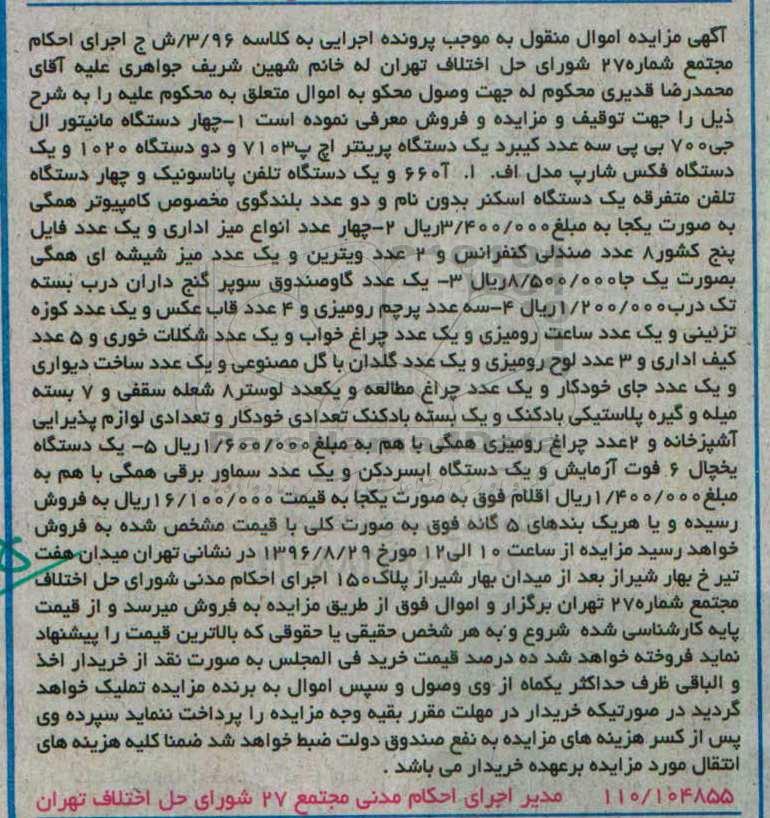 آگهی مزایده اموال منقول به موجب پرونده اجرایی به کلاسه ۳/۹۶/ش ج اجرای احکام
مجتمع شماره۲۷ شورای حل اختلاف تهران له خانم شهین شریف جواهری علیه آقای
محمدرضا قدیری محکوم له جهت وصول محکو به اموال متعلق به محکوم علیه را به شرح
ذیل را جهت توقیف و مزایده و فروش معرفی نموده است ۱-چهار دستگاه مانیتور ال
جی۷۰۰ بی پی سه عدد کیبرد یک دستگاه پرینتر اچ پ۷۱۰۳ و دو دستگاه ۱۰۲۰ و یک
دستگاه فکس شارپ مدل اف. ا. آ۶۶۰ و یک دستگاه تلفن پاناسونیک و چهار دستگاه
تلفن متفرقه یک دستگاه اسکنر بدون نام و دو عدد بلندگوی مخصوص کامپیوتر همگی
به صورت یکجا به مبلغ۳/۴۰۰/۰۰۰ریال ۲-چهار عدد انواع میز اداری و یک عدد فایل
پنج کشور۸ عدد صندلی کنفرانس و ۲ عدد ویترین و یک عدد میز شیشه ای همگی
بصورت یک جا۸/۵۰۰/۰۰۰ریال ۳- یک عدد گاوصندوق سوپر گنج داران درب بسته
تک درب۱/۲۰۰/۰۰۰ریال ۴-سه عدد پرچم رومیزی و ۴ عدد قاب عکس و یک عدد کوزه
تزئینی و یک عدد ساعت رومیزی و یک عدد چراغ خواب و یک عدد شکلات خوری و ۵ عدد
کیف اداری و ۳ عدد لوح رومیزی و یک عدد گلدان با گل مصنوعی و یک عدد ساخت دیواری
و یک عدد جای خودکار و یک عدد چراغ مطالعه و یکعدد لوستر۸ شعله سقفی و ۷ بسته
میله و گیره پلاستیکی بادکنک و یک بسته بادکنک تعدادی خودکار و تعدادی لوازم پذیرایی
آشپزخانه و ۲عدد چراغ رومیزی همگی با هم به مبلغ۱/۶۰۰/۰۰۰ریال ۵- یک دستگاه
یخچال ۶ فوت آزمایش و یک دستگاه ابسردکن و یک عدد سماور برقی همگی با هم به
مبلغ۱/۴۰۰/۰۰۰ریال اقلام فوق به صورت یکجا به قیمت ۱۶/۱۰۰/۰۰۰ریال به فروش
رسیده و یا هریک بندهای ۵ گانه فوق به صورت کلی با قیمت مشخص شده به فروش
خواهد رسید مزایده از ساعت ۱۰ الی۱۲ مورخ ۱۳۹۶/۸/۲۹ در نشانی تهران میدان هفت
تیر خ بهار شیراز بعد از میدان بهار شیراز پلاک۱۵۰ اجرای احکام مدنی شورای حل اختلاف
مجتمع شماره۲۷ تهران برگزار و اموال فوق از طریق مزایده به فروش میرسد و از قیمت
پایه کارشناسی شده شروع و به هر شخص حقیقی یا حقوقی که بالاترین قیمت را پیشنهاد
نماید فروخته خواهد شد ده درصد قیمت خرید فی المجلس به صورت نقد از خریدار اخذ
و الباقی ظرف حداکثر یکماه از وی وصول و سپس اموال به برنده مزایده تملیک خواهد
گردید در صورتیکه خریدار در مهلت مقرر بقیه وجه مزایده را پرداخت ننماید سپرده وی
پس از کسر هزینه های مزایده به نفع صندوق دولت ضبط خواهد شد ضمنا کلیه هزینه های
انتقال مورد مزایده برعهده خریدار می باشد .
۱۱۰/۱۰۴۸۵۵ مدیر اجرای احکام مدنی مجتمع ۲۷ شورای حل اختلاف تهران